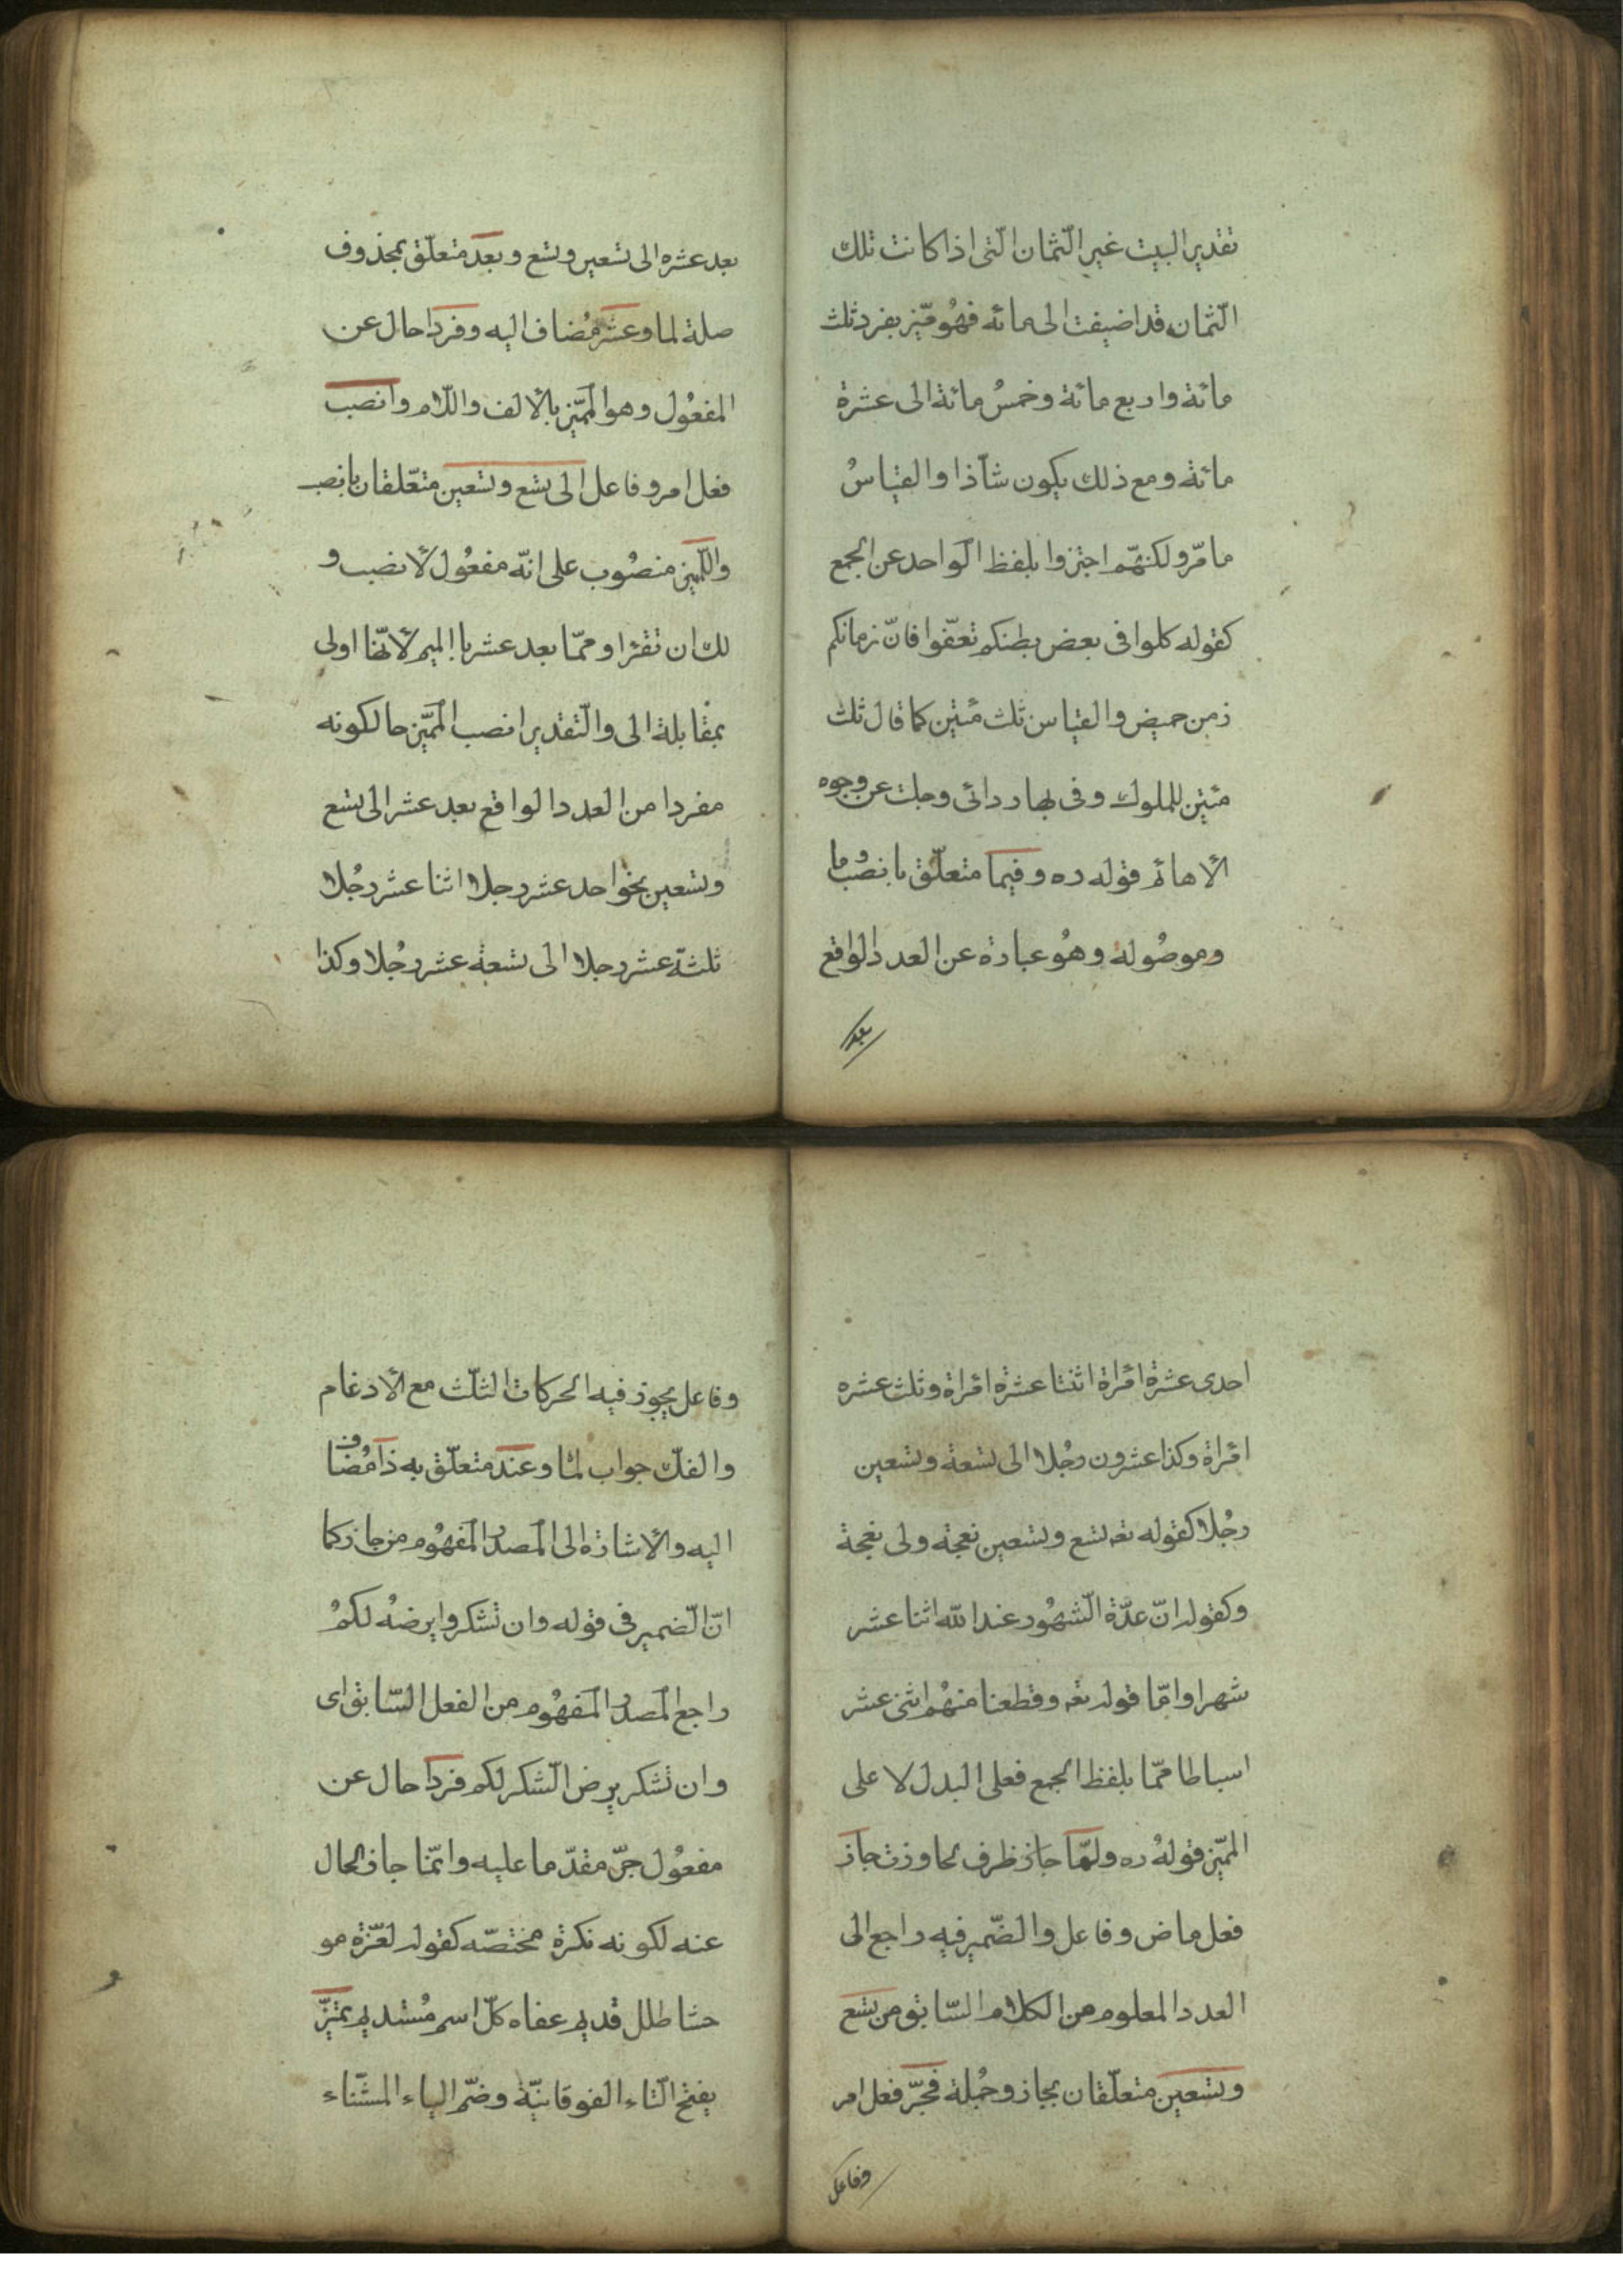 تقدير البيت غير الثّمان الّتى اذا كانت تلك
الثّمان قد اضيفت الى مائه فهُو مميّز بفرد ثلث
مائة واربع مائة وخمسُ مائة الى عشرة
مائة ومع ذلك يكون شآذا والقياسُ
ما مرّ ولكنهّم اجتزوا بلفظ الواحد عن الجمع
كقوله كلوا فى بعض بطنكم تعفّوا فانّ زمانكم
زمن خميض والقياس ثلث مئين كما قال ثلث
مئين للملوك وفى بها ردائى وجلت عن وجوه
الأهاتم قوله ره وفيما متعلّق بانصُب وما
وموصُوله وهُو عبارة عن العدد الواقع
بعد
بعد عشره الى تسعين وتسع وبعد متعلّق بمحذوف
صلة لما وعشر مُضاف اليه وفردا حال عن
المفعُول وهو المميّز بالألف واللّام وانصب
فعل امر وفاعل الى تسع وتسعين متعّلقان بانصب
والمميز منصُوب على انّه مفعُول لأنصب و
لك ان تقرا وممّا بعد عشر باالميم لأنهّا اولى
بمقابلة الى والتّقدير انصب المميّز حالكونه
مفردا من العدد الواقع بعد عشر الى تسع
وتسعين نحو احد عشر رجلا اثنا عشر رجُلا
ثلثة عشر رجلا الى تسعة عشر رجُلا وكذا
احدى عشرة امرأة اثنتا عشرة امرأة وثلث عشره
امرأة وكذا عشرون رجُلا الى تسعة وتسعين
رجُلا كقوله تعه تسع وتسعين نعجة ولى نعجة
وكقوله انّ عدّة الشّهُور عند الله اثنا عشر
شهرا وامّا قوله تعه وقطعنا منهُم اثنى عشر
اسباطا ممّا بلفظ الجمع فعلى البدل لا على
المميّز قولهُ ره ولمّا جاز ظرف لجاوزت جاز
فعل ماض وفاعل والضّمير فيه راجع الى
العدد المعلوم من الكلام السّابق من تسع
وتسعين متعلّقان بجاز وجُملة فجرّ فعل امر
وفاعل
وفاعل يجوز فيه الحركات الثلّث مع الأدغام
والفكّ جواب لمّا وعند متعلّق به ذا مُضاف
اليه والأشارة الى المصدر المفهُوم من جاز كما
انّ الضّمير فى قوله وان تشكروا يرضهُ لكمُ
راجع المصدر المفهُوم من الفعل السّابق اى
وان تشكر يرض الشّكر لكم فردا حال عن
مفعُول جرّ مقدّما عليه وانمّا جاز الحال
عنه لكونه نكرة مختصّه كقوله لعزّة مو
حشا طلل قديم عفاه كلّ اسحم مُستديم تميّز
بفتح التّاء الفوقانيّة وضمّ الياء المثنّاء